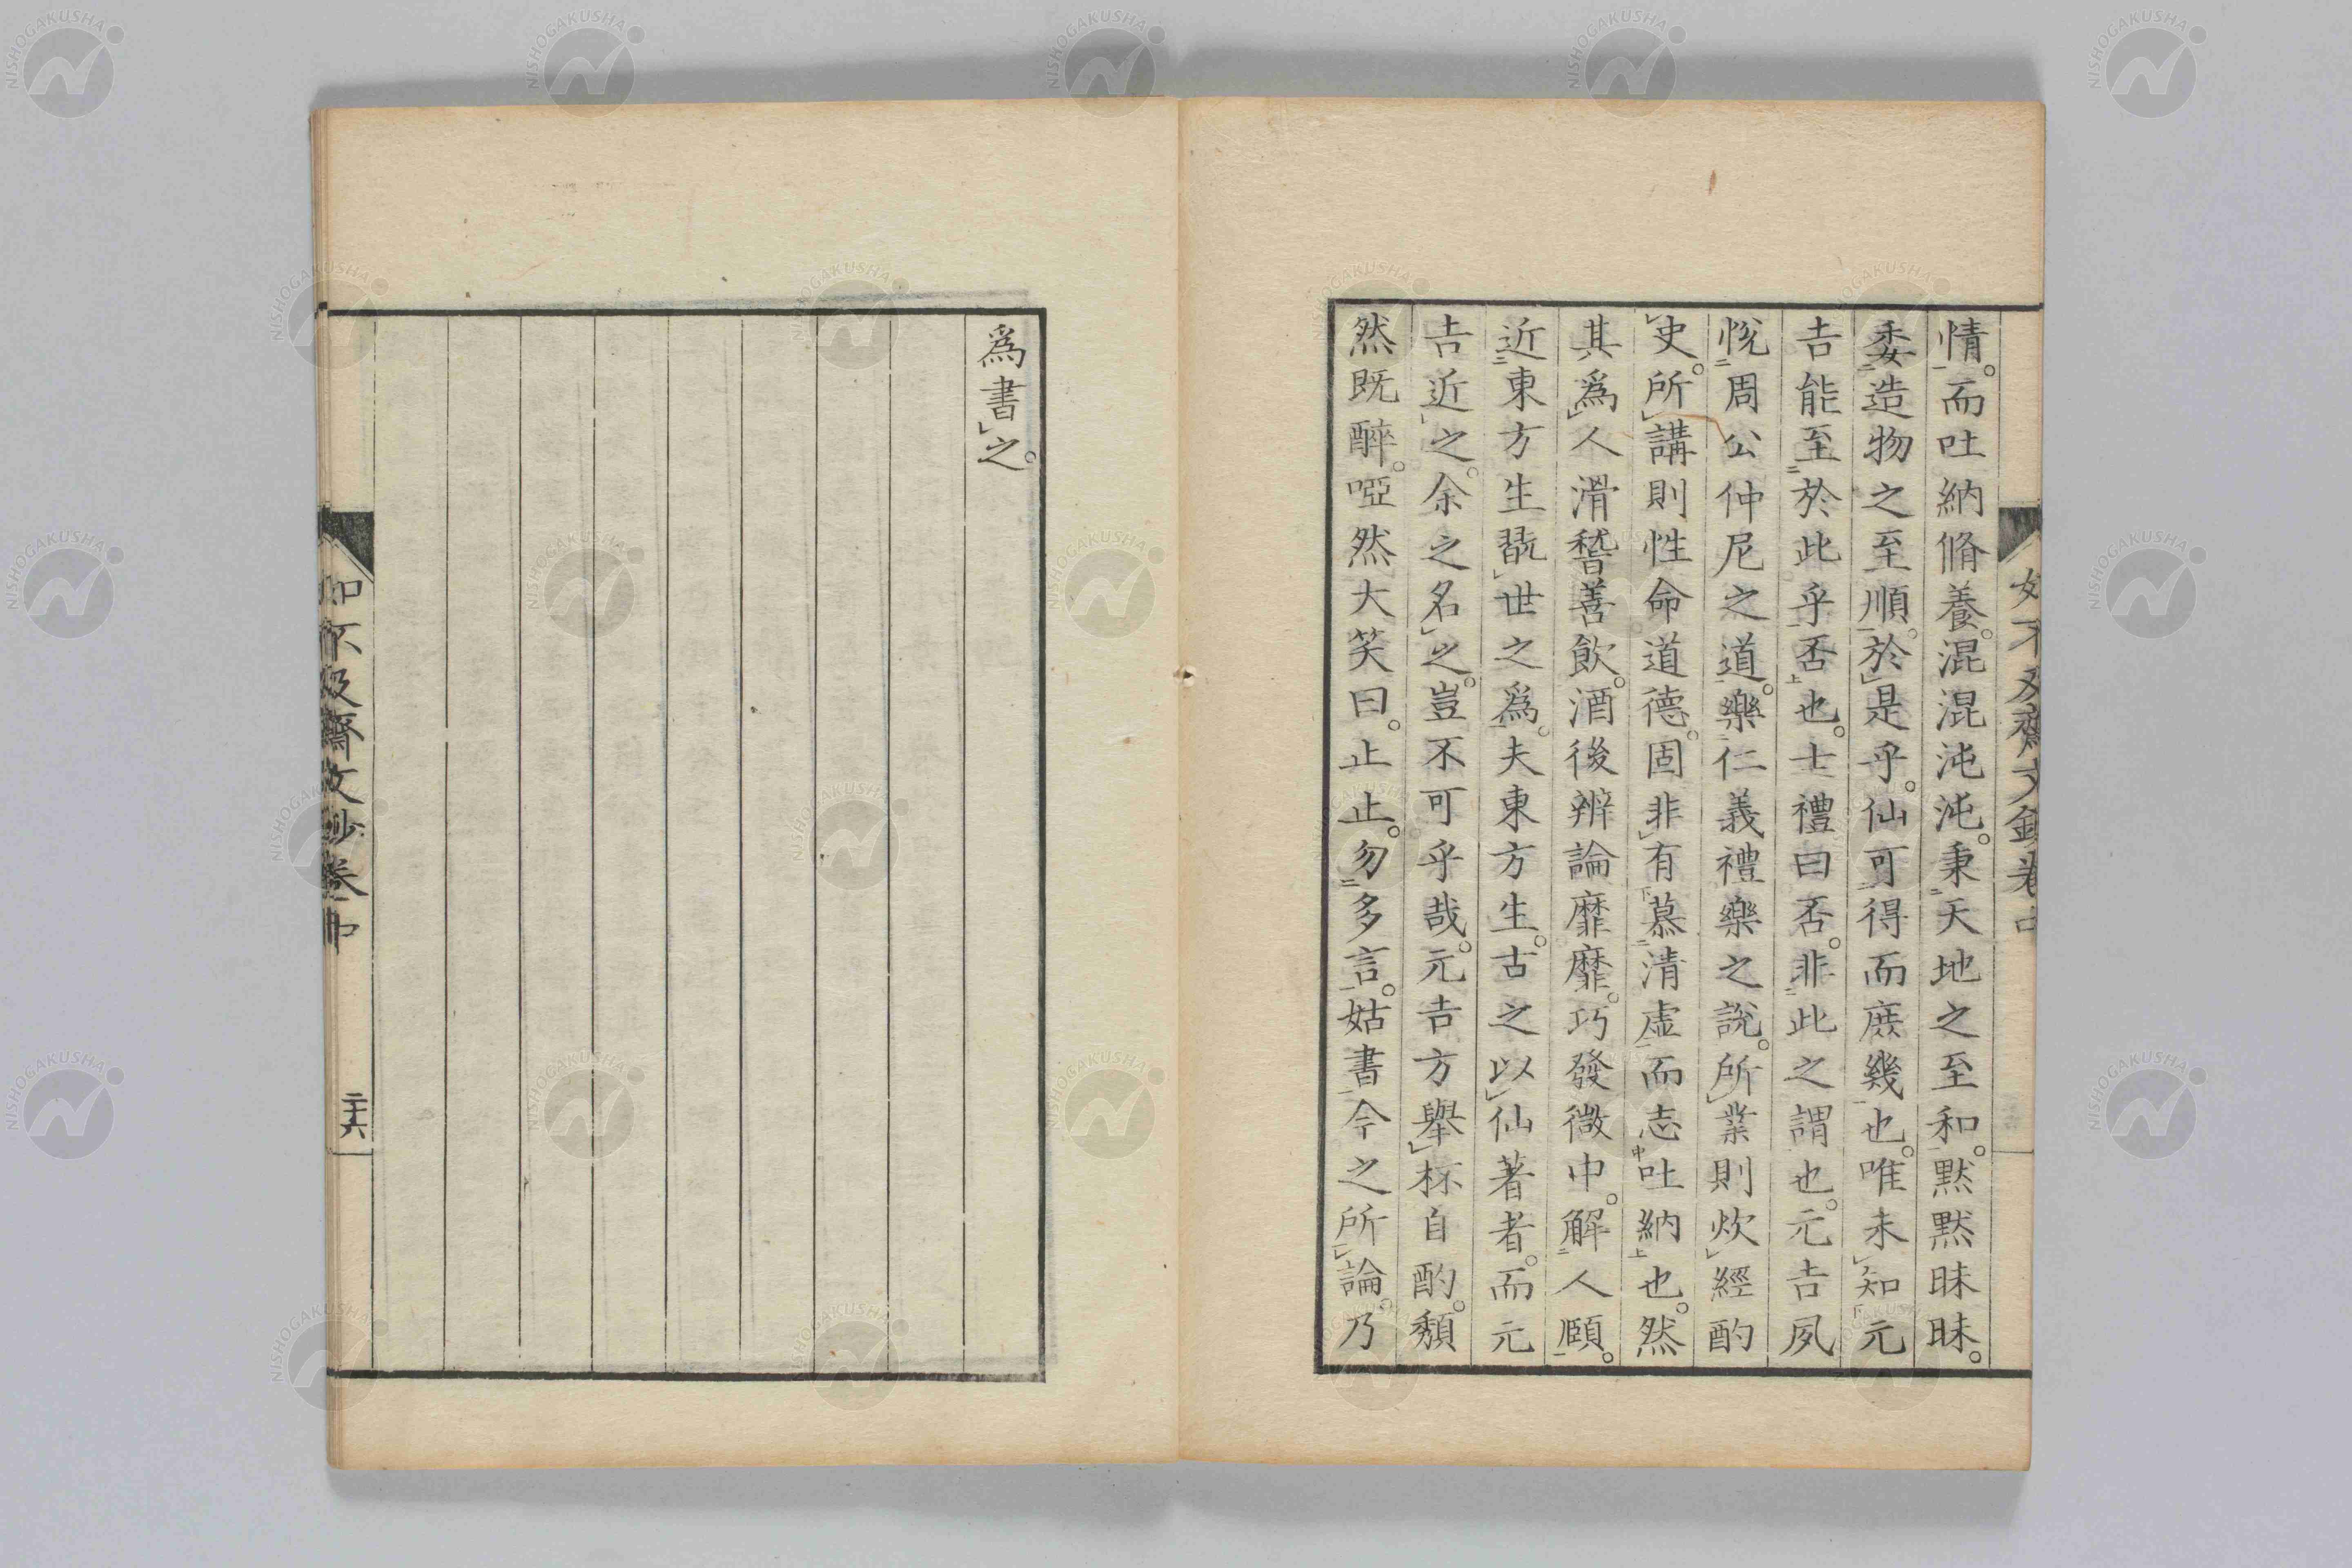 情。而吐納脩養。混混沌沌。秉天地之至和。黙黙昧昧。
委造物之至順。於是乎。仙可得而庶幾也。唯未知元
吉能至於此乎否也。士禮曰否。非此之謂也。元吉夙
悅周公仲尼之道。樂仁義禮樂之說。所業則炊經酌
史。所講則性命道德。固非有慕清虛而志吐納也。然
其爲人滑稽善飲。酒後辨論靡靡。巧發微中。解人頤。
近東方生翫世之爲。夫東方生。古之以仙著者。而元
吉近之。余之名之。豈不可乎哉。元吉方擧杯自酌。頹
然既醉。啞然大笑曰。止止。勿多言。姑書今之所論。乃
爲書之。
如不及齋文鈔卷中
二十六
NISHOGAKUSHA